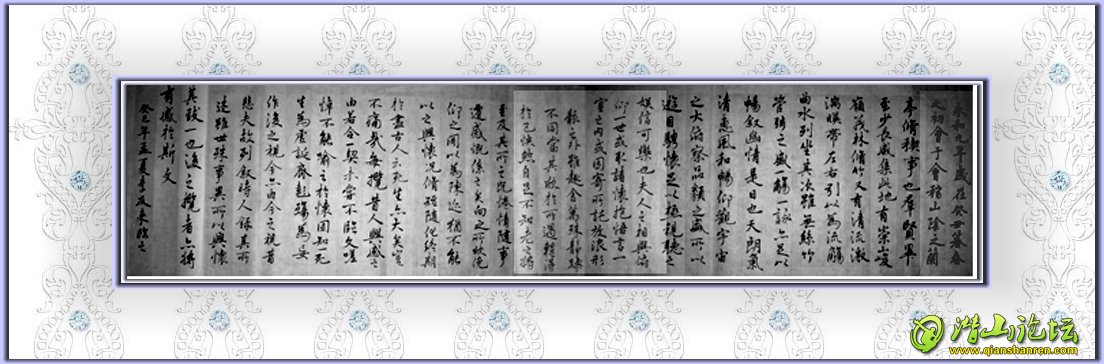 永和九年歲在癸丑暮春
之初會于會稽山陰之蘭
亭脩稧事也群賢畢
至少長咸集此地有崇峻
嶺茂林脩竹又有清流激
湍暎帶左右引以為流觴
曲水列坐其次雖無絲竹
管弦之盛一觴一詠亦足以
暢叙幽情是日也天朗氣
清惠風和暢仰觀宇宙
之大俯察品類之盛所以
遊目騁懷足以極視聽之
娛信可樂也夫人之相與俯
仰一世或取諸懷抱悟言一
室之内或因寄所託放浪形
骸之外雖趣舍萬殊靜躁
不同當其欣於所遇暫得
於己怏然自足不知老之將
至及其所之既惓情隨事
遷感慨係之矣向之所欣俛
仰之閒以為陳迹猶不能
以之興懷況脩短隨化終期
於盡古人云死生亦大矣豈
不痛哉每攬昔人興感之
由若合一契未嘗不臨文嗟
悼不能喻之於懷固知一死
生為虛誕齊彭殤為妄
作後之視今亦由今之視昔
悲夫故列叙時人録其所
述雖世殊事異所以興懷
其致一也後之攬者亦將
有感於斯文
癸巳年孟夏李友東臨之
潜山论坛
www.qianshanren.com